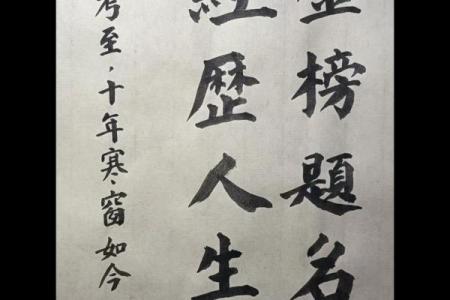 金榜題名
經歴人生
考至，十年寒窗如今